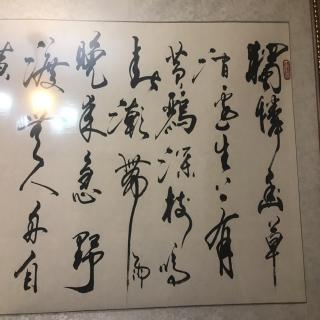 獨憐幽草
澗邊生上有
黃鸝深樹鳴
春潮帶雨
晚來急野
渡無人舟自